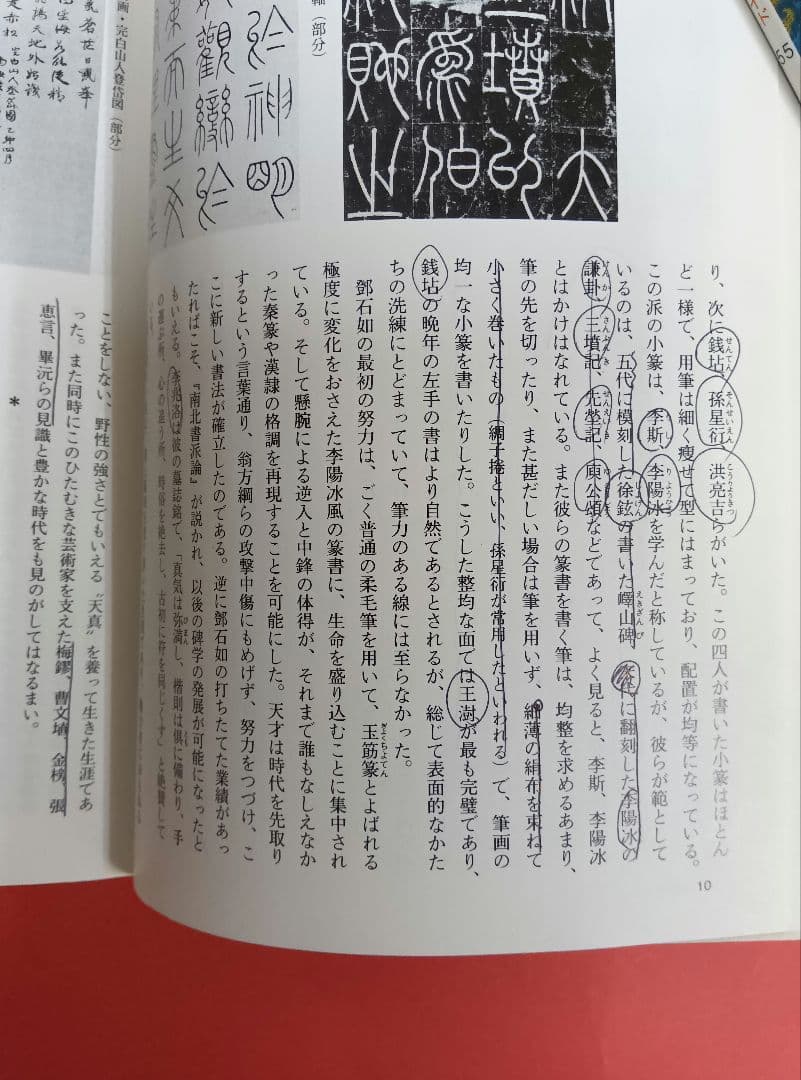 り、次に銭坫、孫星衍、洪亮吉らがいた。この四人が書いた小篆はほとん
ど一様で、用筆は細く痩せて型にはまっており、配置が均等になっている。
この派の小篆は、李斯、李陽冰を学んだと称しているが、彼らが範として
いるのは、五代に模刻した徐鉉の書いた嶧山碑、
代に翻刻した李陽冰の
謙卦、三墳記、先塋記、庾公頌などであって、よく見ると、李斯、李陽冰
とはかけはなれている。また彼らの篆書を書く筆は、均整を求めるあまり、
筆の先を切ったり、また甚だしい場合は筆を用いず、細薄の絹布を束ねて
小さく巻いたもの(綢子捲といい、孫星衍が常用したといわれる)で、筆画の
均一な小篆を書いたりした。こうした整均な面では王澍が最も完璧であり、
銭坫の晩年の左手の書はより自然であるとされるが、総じて表面的なかた
ちの洗練にとどまっていて、筆力のある線には至らなかった。
鄧石如の最初の努力は、ごく普通の柔毛筆を用いて、玉筋篆とよばれる
極度に変化をおさえた李陽冰風の篆書に、生命を盛り込むことに集中され
ている。そして懸腕による逆入と中鋒の体得が、それまで誰もなしえなか
った秦篆や漢隷の格調を再現することを可能にした。天才は時代を先取り
するという言葉通り、翁方綱らの攻撃中傷にもめげず、努力をつづけ、こ
こに新しい書法が確立したのである。逆に鄧石如の打ちたてた業績があっ
たればこそ、『南北書派論』が説かれ、以後の碑学の発展が可能になったと
もいえる。李兆洛は彼の墓誌銘で、「真気は弥満し、楷則は倶に備わり、手
の運ぶ所、心の追う所、時俗を絶去し、古初に符を同じくす」と絶賛して
10
ことをしない、野性の強さとでもいえる〝天真〟を養って生きた生涯であ
った。また同時にこのひたむきな芸術家を支えた梅鏐、曹文埴、金榜、張
恵言、畢沅らの見識と豊かな時代をも見のがしてはなるまい。
*
画・完白山人登岱図(部分)
(部分)
65